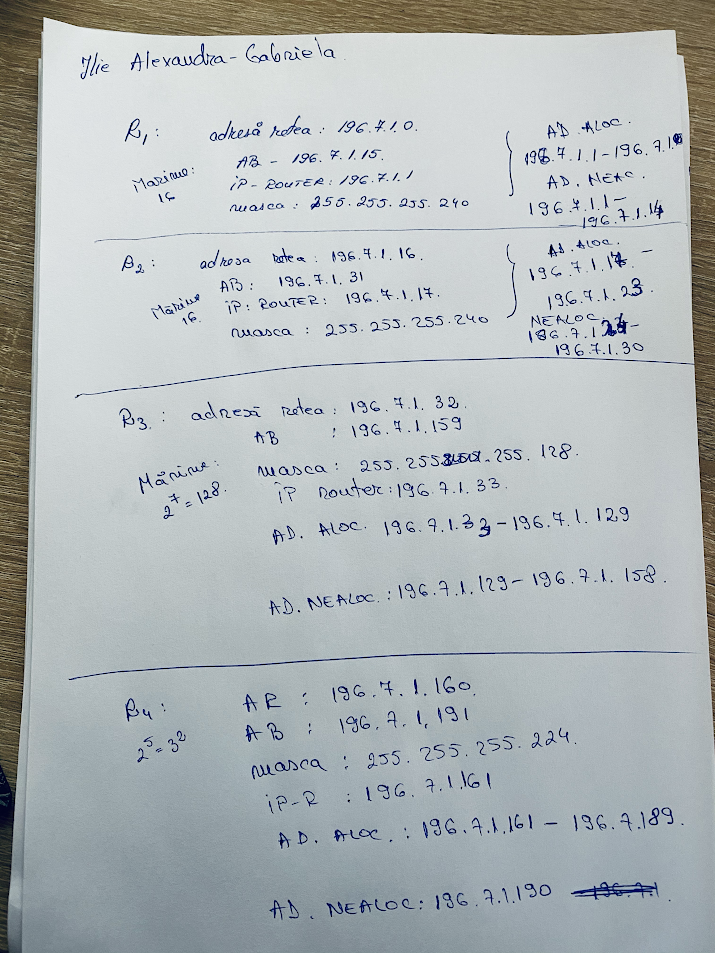 Ilie Alexandra-Gabriela
R1: adresă rețea: 196.7.1.0.
AB - 196.7.1.15.
Marime: 16
IP-ROUTER: 196.7.1.1
masca: 255.255.255.240
AD. ALOC.
196.7.1.1 - 196.7.1.
AD. NEAC.
196.7.1.1 -
- 196.7.1.14
R2: adresa rețea: 196.7.1.16.
AB: 196.7.1.31
Mărime 16.
IP: ROUTER: 196.7.1.17.
masca: 255.255.255.240
AD. ALOC.
196.7.1.17 -
196.7.1.23.
NEALOC.
196.7.1.24 -
196.7.1.30
R3.: adresă rețea: 196.7.1.32.
AB : 196.7.1.159
Mărime: 2^7=128.
masca: 255.255.255.128.
IP Router: 196.7.1.33.
AD. ALOC. 196.7.1.33 - 196.7.1.129
AD. NEALOC.: 196.7.1.129 - 196.7.1.158.
R4: AR : 196.7.1.160.
2^5=3^2
AB : 196.7.1.191
masca : 255.255.255.224.
IP-R : 196.7.1.161
AD. ALOC. : 196.7.1.161 - 196.7.189.
AD. NEALOC: 196.7.1.190